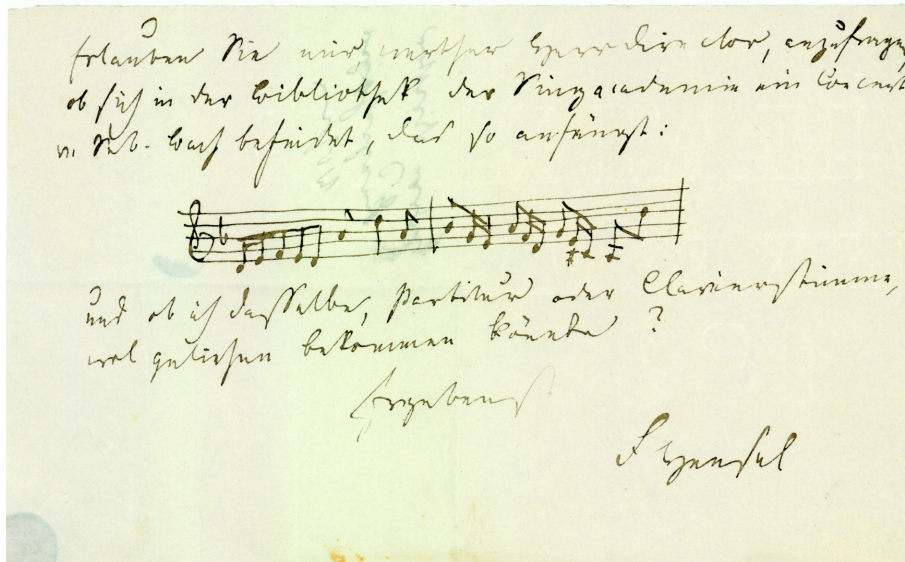 Erlauben Sie mir, werther Herr Director, anzufragen,
ob sich in der Bibliothek der Singacademie ein Concert
v. Seb. Bach befindet, das so anfängt:
und ob ich dasselbe, Partitur oder Clavierstimme,
wol geliehen bekommen könnte?
Ergebenst
F Hensel